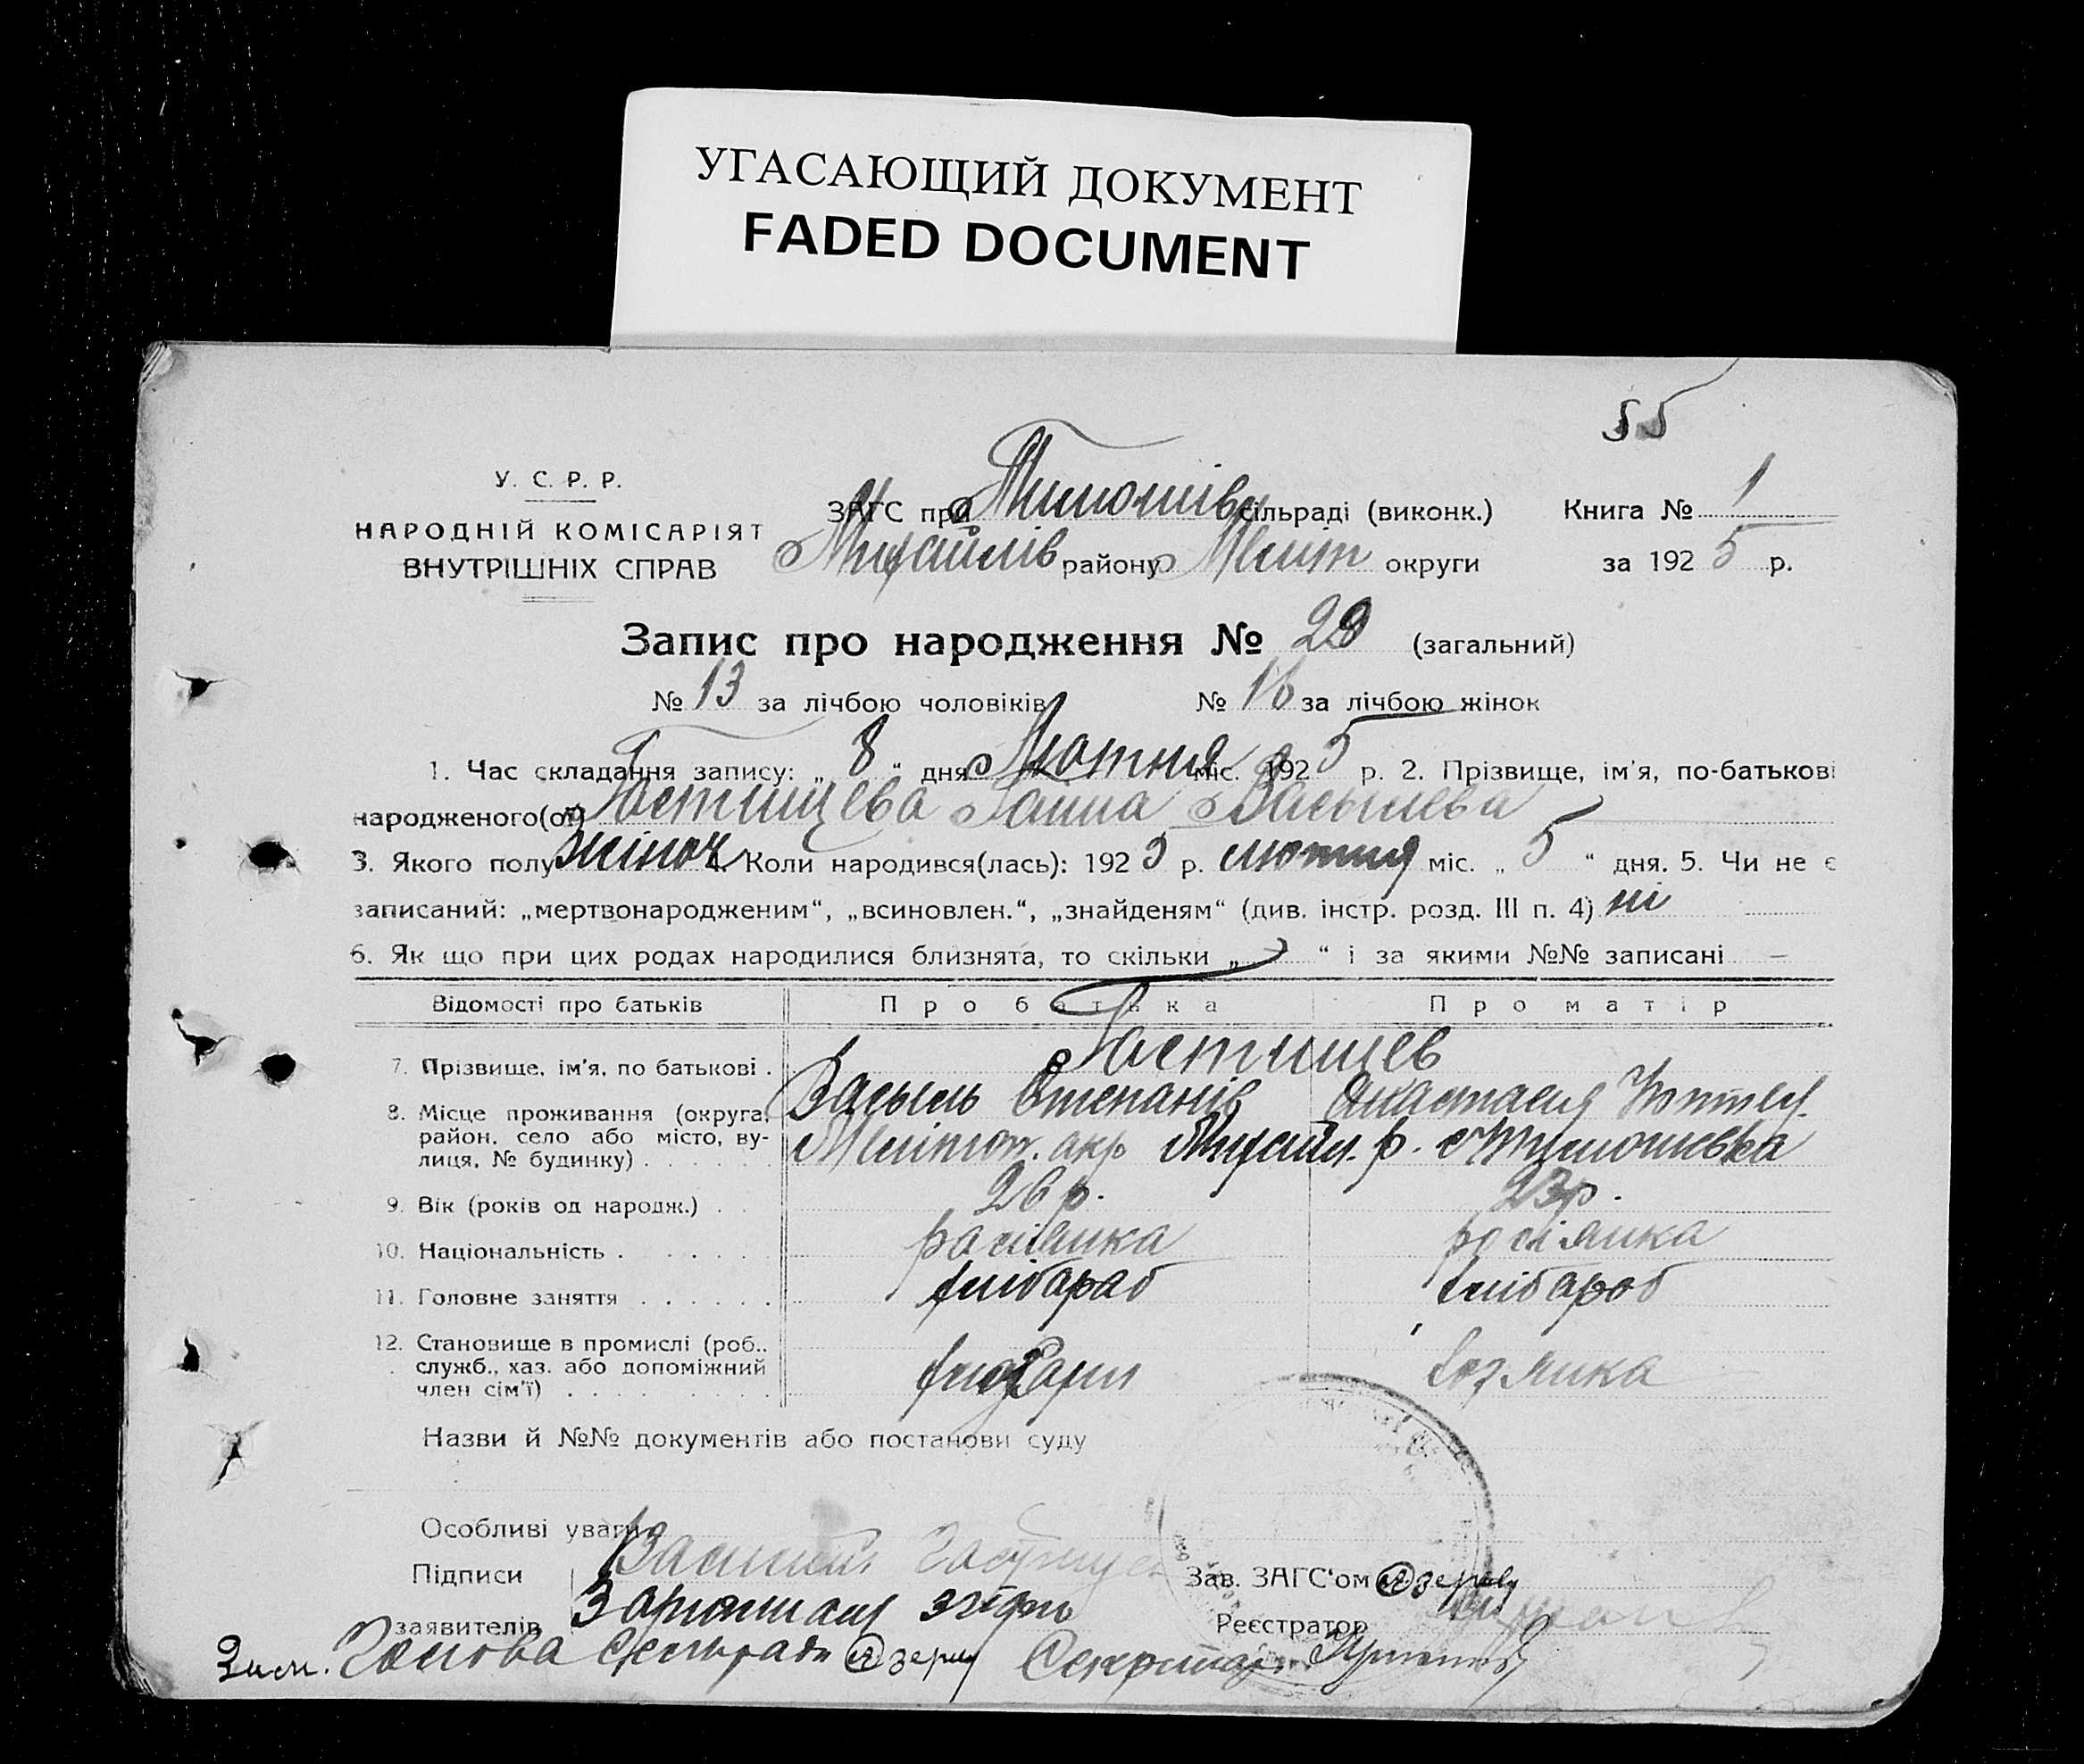 УГАСАЮЩИЙ ДОКУМЕНТ
FADED DOCUMENT
55
У. С. Р. Р.
НАРОДНІЙ КОМІСАРІЯТ
ВНУТРІШНІХ СПРАВ
ЗАГС при Тимошівс сільраді (виконк.)
Михайлів району Меліт округи
Книга № 1
за 1925 р.
Запис про народження № 29 (загальний)
№ 13 за лічбою чоловіків № 16 за лічбою жінок
1. Час складання запису: „ 8 “ дня Лютня міс. 1925 р. 2. Прізвище, ім'я, по-батькові
народженого(ої) Гостищева Ганна Васильева
3. Якого полу жіноч 4. Коли народився(лась): 1925 р. лютня міс. „ 5 “ дня. 5. Чи не є
записаний: „мертвонародженим“, „всиновлен.“, „знайденям“ (див. інстр. розд. III п. 4) ні
6. Як що при цих родах народилися близнята, то скільки „ “ і за якими №№ записані —
Відомості про батьків Про батька Про матір
7. Прізвище, ім'я, по батькові . Гостищев
Василь Степанів Анастасія
8. Місце проживання (округа, район, село або місто, вулиця, № будинку) Мелітоп. окр Михайл. р. Тимошевка
9. Вік (років од народж.) . . 26 р. 23 р.
10. Національність . росіянка росіянка
11. Головне заняття хлібороб хлібороб
12. Становище в промислі (роб., служб., хаз. або допоміжний член сім'ї) хозяика
Назви й №№ документів або постанови суду
Особливі уваги
Підписи Василий
заявителів
Зав. ЗАГС'ом
Реєстратор
Голова Сільради Секритар